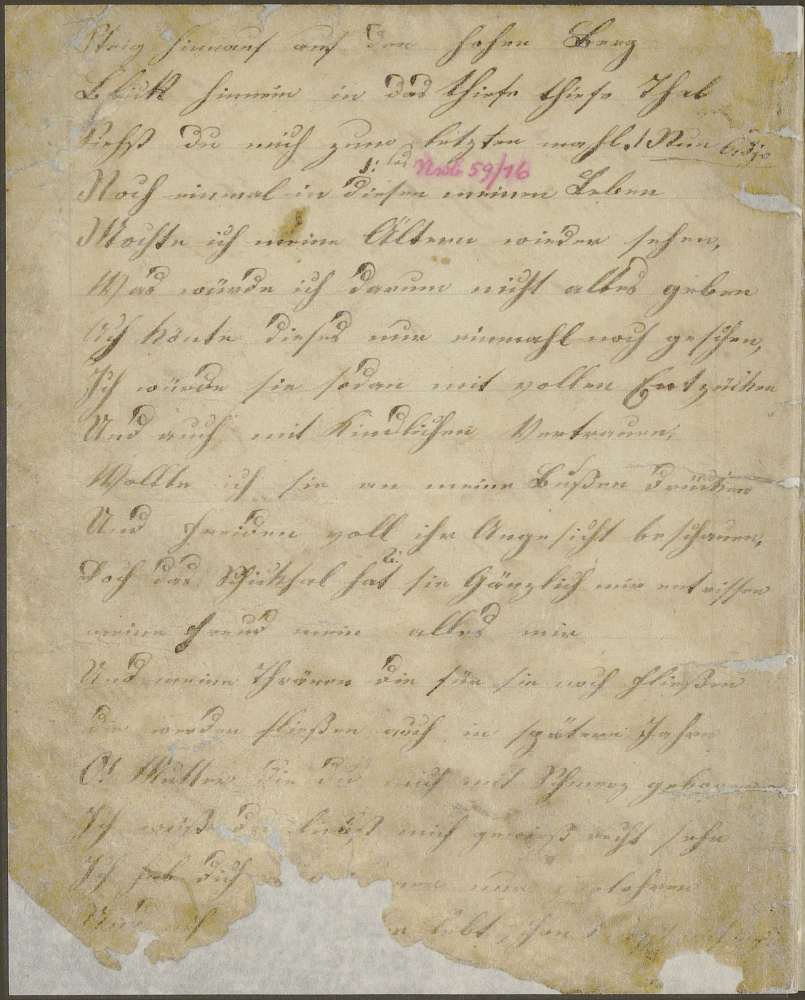 Steig hinauf auf den hohen Berg
Blick hinnein in das thiefe thiefe Thal
siehst du mich zum letzten mahl. Nun Adje
1. tes Nwb 59/16
Noch einmal in diesen meinen Leben
Mochte ich meine Ältern wieder sehen,
Was würde ich darum nicht alles geben
Ach könte dieses nur einmahl noch geschehen,
Ich würde sie sodan mit vollen Entzüken
Und auch mit Kindlichen Vertrauen,
Wollte ich sie an meine Bußen drüken
Und freiden voll ihr Angesicht beschauen,
2.
Doch das Schiksal hat sie Gänzlich mir entrissen
meine freud mein alles mir
Und meine Thränen die für sie noch fließen
die werden fließen noch in spätern Jahren
O! Mutter die du mich mit Schmerz geboren
Ich weiß du liebst mich gewiß recht sehr
Ich hab dich nun verlohren
Und lebt